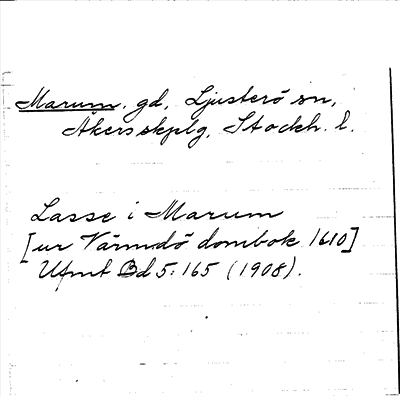 Marum, gd, Ljusterö sn,
Åkers skplg, Stockh. l.
Lasse i Marum
[ur Värmdö dombok 1610]
Ufmt Bd 5:165 (1908).